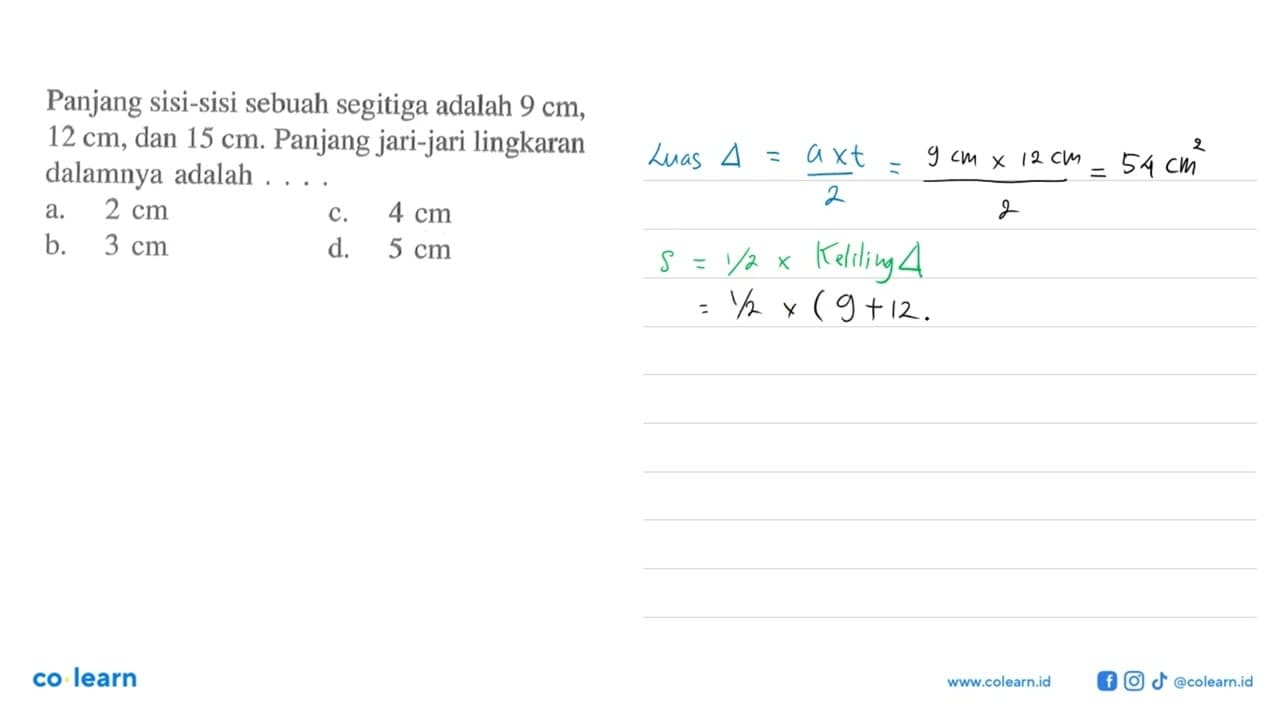 Panjang sisi-sisi sebuah segitiga adalah 9 cm,
12 cm, dan 15 cm. Panjang jari-jari lingkaran
dalamnya adalah . . . .
a. 2 cm c. 4 cm
b. 3 cm d. 5 cm
Luas Δ = a x t / 2 = 9 cm x 12 cm / 2 = 54 cm²
S = 1/2 x Keliling Δ
= 1/2 x (9 + 12.
co learn
www.colearn.id @colearn.id